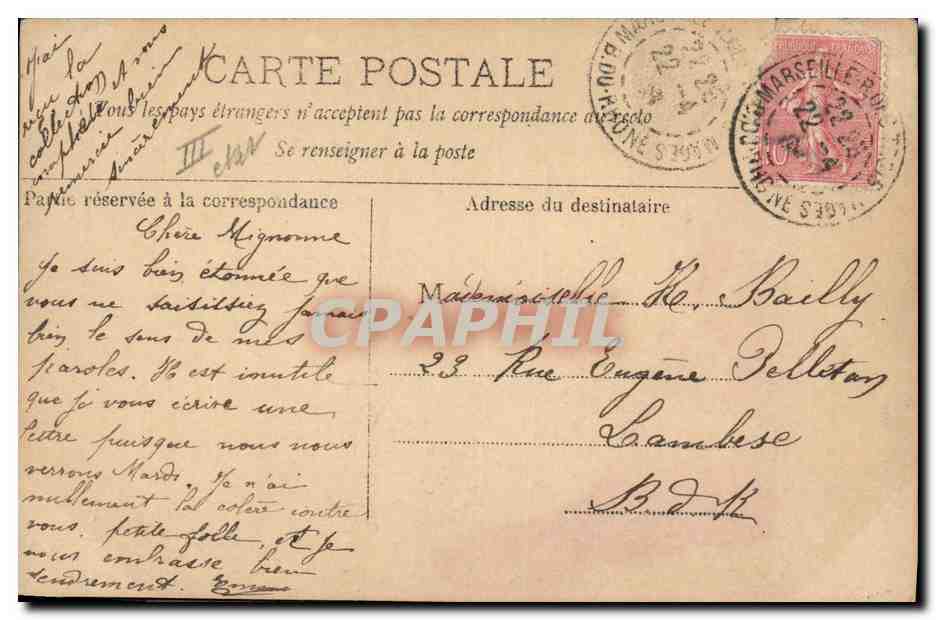 J'ai
reçu la
collection
complète et vous
remercie bien
sincèrement
CARTE POSTALE
Tous les pays étrangers n'acceptent pas la correspondance au recto
Se renseigner à la poste
III
Partie réservée à la correspondance
Adresse du destinataire
Chère Mignonne
Je suis bien étonnée que
vous ne saisissiez jamais
bien le sens de mes
paroles. Il est inutile
que je vous écrive une
lettre puisque nous nous
verrons Mardi. Je n'ai
nullement la colère contre
vous, petite folle, et je
vous embrasse bien
tendrement.
Mademoiselle K. Bailly
23 Rue Eugène Pelletan
Lambesc
B d R
CPAPHIL